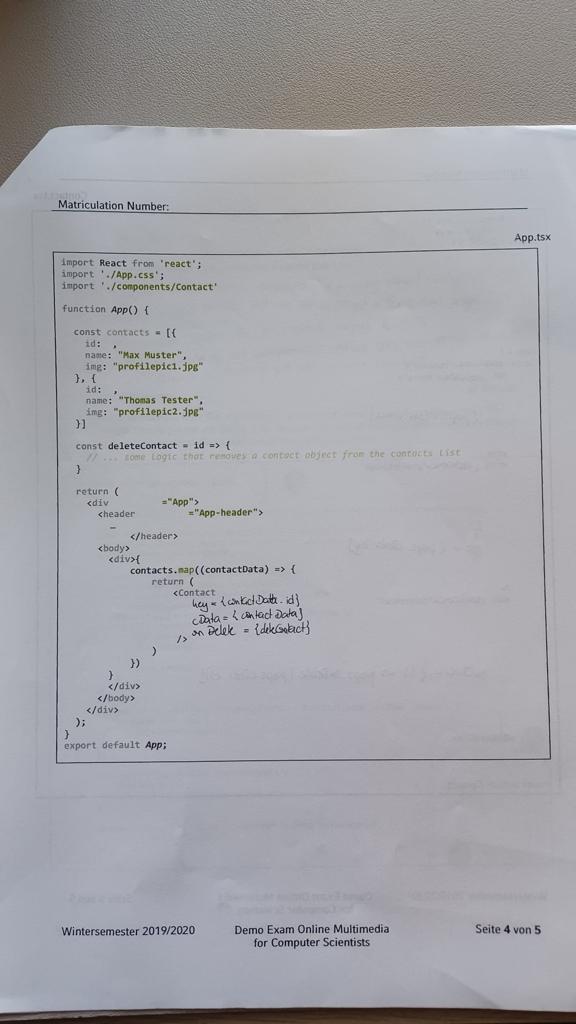 Matriculation Number:
App.tsx
import React from 'react';
import './App.css';
import './components/Contact'
function App() {
const contacts = [{
id: ,
name: "Max Muster",
img: "profilepic1.jpg"
}, {
id: ,
name: "Thomas Tester",
img: "profilepic2.jpg"
}]
const deleteContact = id => {
// ... some logic that removes a contact object from the contacts list
}
return (
<div ="App">
<header ="App-header">
…
</header>
<body>
<div>{
contacts.map((contactData) => {
return (
<Contact
key = {contactData.id}
cData = {contactData}
on Delete = {deleteContact}
/>
)
})
}
</div>
</body>
</div>
);
}
export default App;
Wintersemester 2019/2020
Demo Exam Online Multimedia
for Computer Scientists
Seite 4 von 5